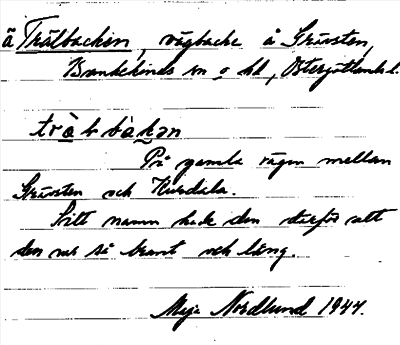 å Trälbacken, vägbacke å Grävsten,
Brunkebinds sn o hd, Östergötlands l.
trä̀lbàkən
På gamla vägen mellan
Grävsten och Hundala.
Sitt namn fick den därför att
den var så brant och lång.
Maja Nordlund 1947.